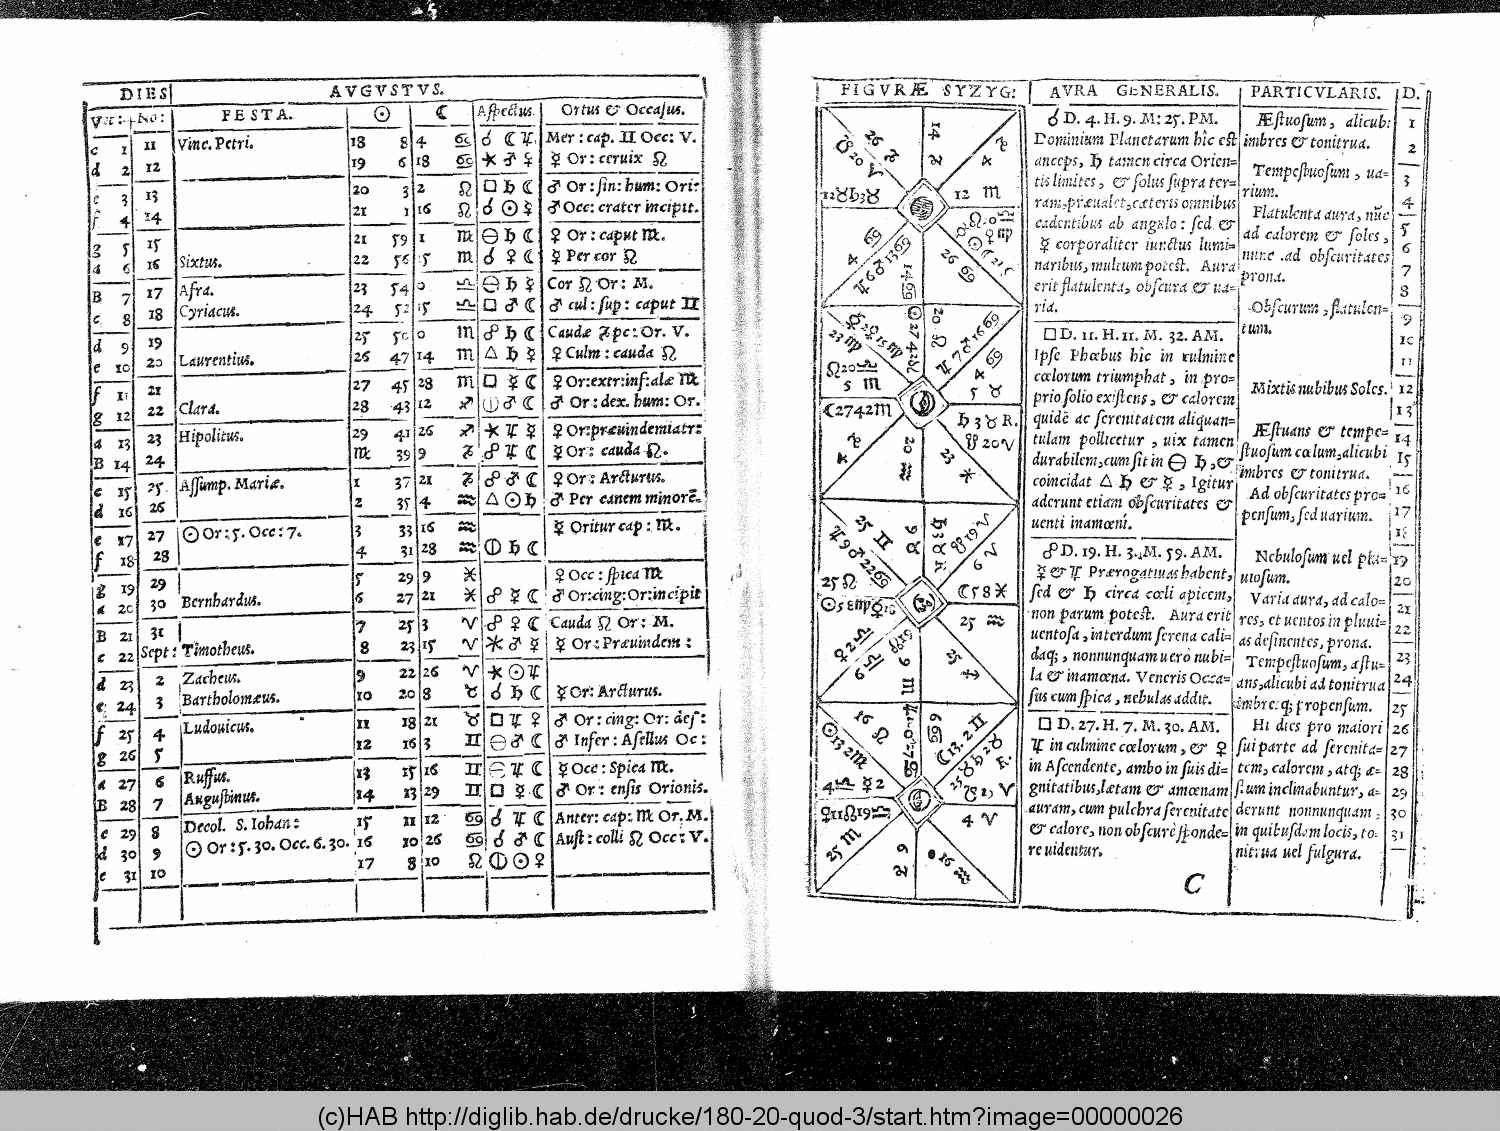 DIES AVGVSTVS.
Vet: No: FESTA. ☉ ☾ Aspectus. Ortus & Occasus.
c 1 11 Vinc. Petri. 18 8 4 ♋ ☌ ☾ ♃ Mer: cap. ♊ Occ: V.
d 2 12 19 6 18 ♋ ⚹ ♂ ♀ ☿ Or: ceruix ♌
e 3 13 20 3 2 ♌ □ ♄ ☾ ♂ Or: sin: hum: Ori:
f 4 14 21 1 16 ♌ ☌ ☉ ☿ ♂ Occ: crater incipit.
g 5 15 21 59 1 ♍ ⊖ ♄ ☾ ♀ Or: caput ♏.
a 6 16 Sixtus. 22 56 15 ♍ ☌ ♀ ☾ ☿ Per cor ♌
B 7 17 Afra. 23 54 0 ♎ ⊖ ♄ ☿ Cor ♌ Or: M.
c 8 18 Cyriacus. 24 52 15 ♎ □ ♂ ☾ ♂ cul: sup: caput ♊
d 9 19 25 50 0 ♏ ☍ ♄ ☾ Caudæ ♑ pc: Or. V.
e 10 20 Laurentius. 26 47 14 ♏ △ ♄ ☿ ♀ Culm: cauda ♌
f 11 21 27 45 28 ♏ □ ☿ ☾ ♀ Or: extr: inf: alæ ♍
g 12 22 Clara. 28 43 12 ♐ ⦶ ♂ ☾ ♂ Or: dex. hum: Or.
a 13 23 Hipolitus. 29 41 26 ♐ ⚹ ♃ ☿ ♀ Or: præuindemiatr:
B 14 24 ♍ 39 9 ♑ ☍ ♃ ☾ ☿ Or: cauda ♌.
c 15 25 Assump. Mariæ. 1 37 21 ♑ ☍ ♂ ☾ ♀ Or: Arcturus.
d 16 26 2 35 4 ♒ △ ☉ ♄ ♂ Per canem minorē.
e 17 27 ☉ Or: 5. Occ: 7. 3 33 16 ♒ ☿ Oritur cap: ♍.
f 18 28 4 31 28 ♒ ⦶ ♄ ☾
g 19 29 5 29 9 ♓ ♀ Occ: spica ♍
a 20 30 Bernhardus. 6 27 21 ♓ ☍ ☿ ☾ ♂ Or: cing: Or: incipit
B 21 31 7 25 3 ♈ ☍ ♀ ☾ Cauda ♌ Or: M.
c 22 Sept: Timotheus. 8 23 15 ♈ ⚹ ♂ ☿ ☿ Or: Præuindem:
d 23 2 Zacheus. 9 22 26 ♈ ⚹ ☉ ♃
e 24 3 Bartholomæus. 10 20 8 ♉ ☌ ♄ ☾ ☿ Or: Arcturus.
f 25 4 Ludouicus. 11 18 21 ♉ □ ♃ ♀ ♂ Or: cing: Or: des:
g 26 5 12 16 3 ♊ ⊖ ♂ ☾ ♂ Infer: Asellus Oc:
a 27 6 Ruffus. 13 15 16 ♊ ⊖ ♃ ☾ ☿ Occ: Spica ♍.
B 28 7 Augustinus. 14 13 29 ♊ □ ☿ ☾ ♂ Or: ensis Orionis.
c 29 8 Decol. S. Iohan: 15 11 12 ♋ ☌ ♃ ☾ Anter: cap: ♏ Or. M.
d 30 9 ☉ Or: 5. 30. Occ. 6. 30. 16 10 26 ♋ ☌ ♂ ☾ Aust: colli ♌ Occ: V.
e 31 10 17 8 10 ♌ ⦶ ☉ ♀
FIGVRÆ SYZYG:
AVRA GENERALIS.
☌ D. 4. H. 9. M: 25. PM.
Dominium Planetarum hîc est
anceps, ♄ tamen circa Orien=
tis limites, & solus supra ter=
ram, præualet, cæteris omnibus
cadentibus ab angulo: sed &
☿ corporaliter iunctus lumi=
naribus, multum potest. Aura
erit flatulenta, obscura & ua=
ria.
□ D. 11. H. 11. M. 32. AM.
Ipse Phœbus hîc in culmine
cœlorum triumphat, in pro=
prio solio existens, & calorem
quidē ac serenitatem aliquan=
tulam pollicetur, uix tamen
durabilem, cum sit in ⊖ ♄, &
coincidat △ ♄ & ☿, Igitur
aderunt etiam obscuritates &
uenti inamœni.
☍ D. 19. H. 3. M. 59. AM.
☿ & ♃ Prærogatiuas habent,
sed & ♄ circa cœli apicem,
non parum potest. Aura erit
uentosa, interdum serena cali=
daq;, nonnunquam uero nubi=
la & inamœna. Veneris Occa=
sus cum spica, nebulas addit.
□ D. 27. H. 7. M. 30. AM.
♃ in culmine cœlorum, & ♀
in Ascendente, ambo in suis di=
gnitatibus, lætam & amœnam
auram, cum pulchra serenitate
& calore, non obscurè sponde=
re uidentur.
C
PARTICVLARIS. D.
Æstuosum, alicub: 1
imbres & tonitrua. 2
Tempestuosum, ua= 3
rium. 4
Flatulenta aura, nūc 5
ad calorem & soles, 6
nunc ad obscuritates 7
prona. 8
Obscurum, flatulen= 9
tum. 10
11
Mixtis nubibus Soles. 12
13
Æstuans & tempe= 14
stuosum cœlum, alicubi 15
imbres & tonitrua.
Ad obscuritates pro= 16
pensum, sed uarium. 17
18
Nebulosum uel plu= 19
uiosum. 20
Varia aura, ad calo= 21
res, et uentos in pluui= 22
as desinentes, prona.
Tempestuosum, æstu= 23
ans, alicubi ad tonitrua 24
imbresq; propensum. 25
Hi dies pro maiori 26
sui parte ad serenita= 27
tem, calorem, atq; æ= 28
stum inclinabuntur, a= 29
derunt nonnunquam, 30
in quibusdam locis, to= 31
nitrua uel fulgura.
(c)HAB http://diglib.hab.de/drucke/180-20-quod-3/start.htm?image=00000026